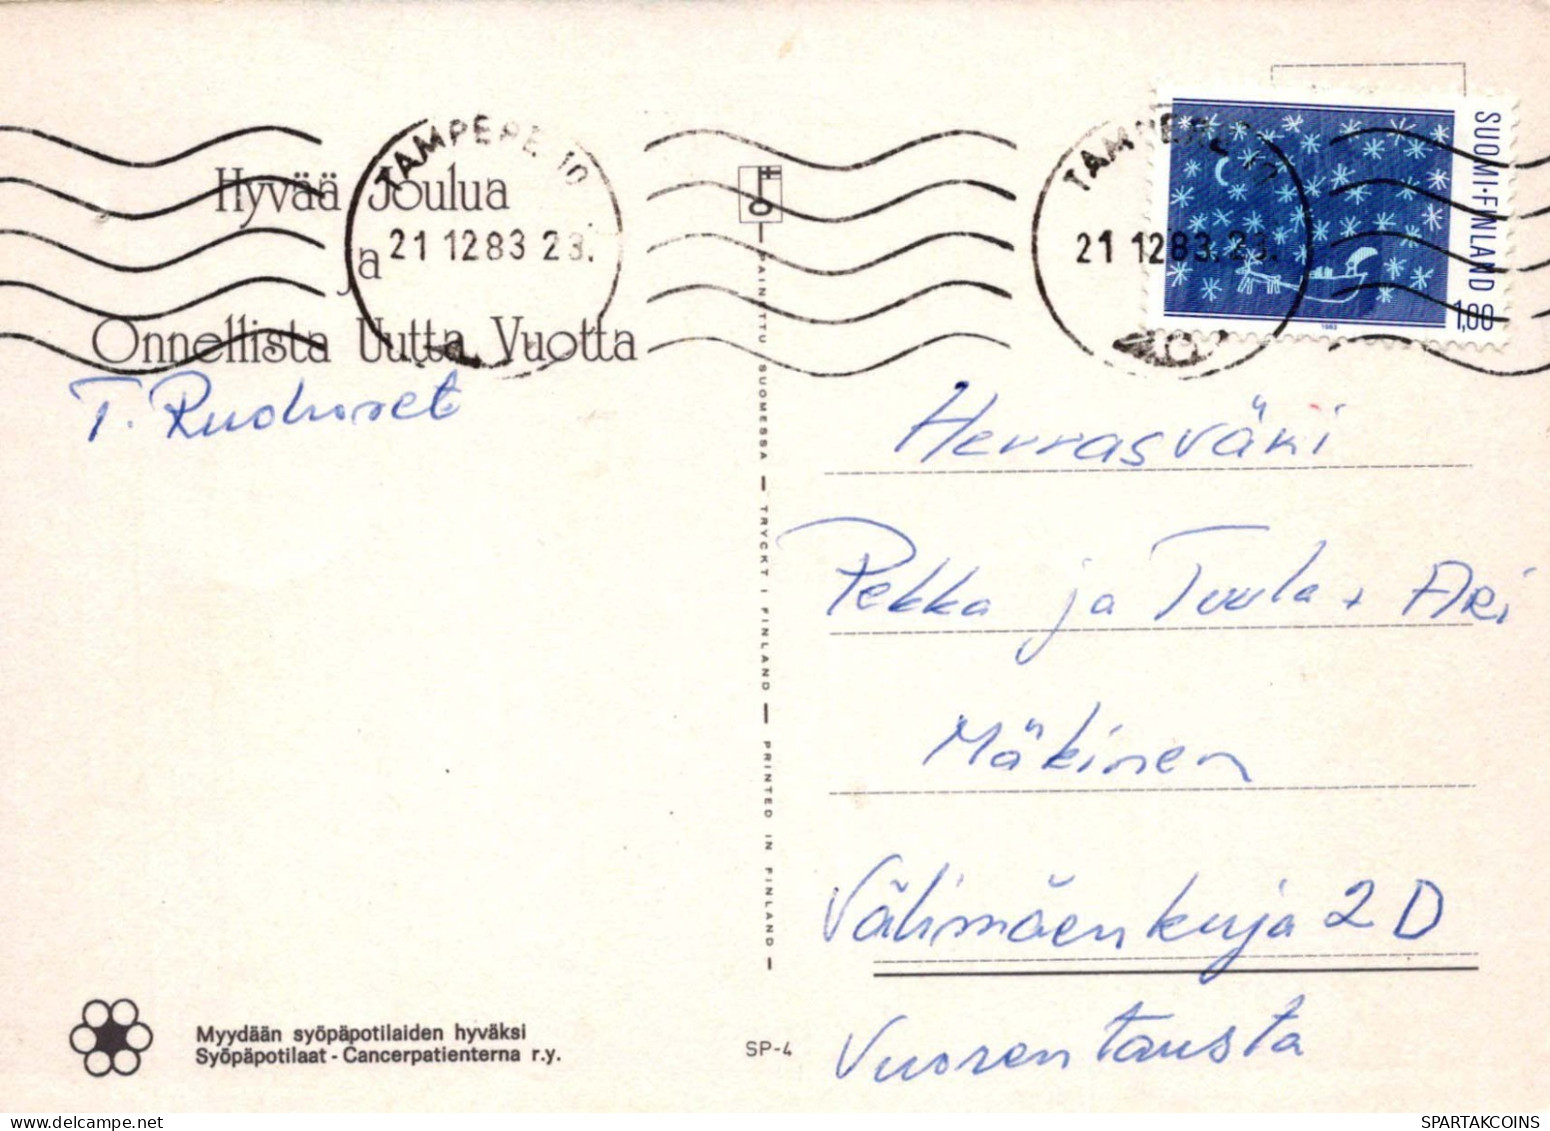 Hyvää Joulua
ja
Onnellista Uutta Vuotta
T. Ruohoset
TAMPERE 10
21 12 83 23.
TAMPERE 10
21 12 83. 23.
SUOMI·FINLAND
1,00
1983
PAINETTU SUOMESSA — TRYCKT I FINLAND — PRINTED IN FINLAND —
Herrasväki
Pekka ja Tuula + Ari
Mäkinen
Välimäenkuja 2 D
Vuorentausta
Myydään syöpäpotilaiden hyväksi
Syöpäpotilaat - Cancerpatienterna r.y.
SP-4
SPARTAKCOINS